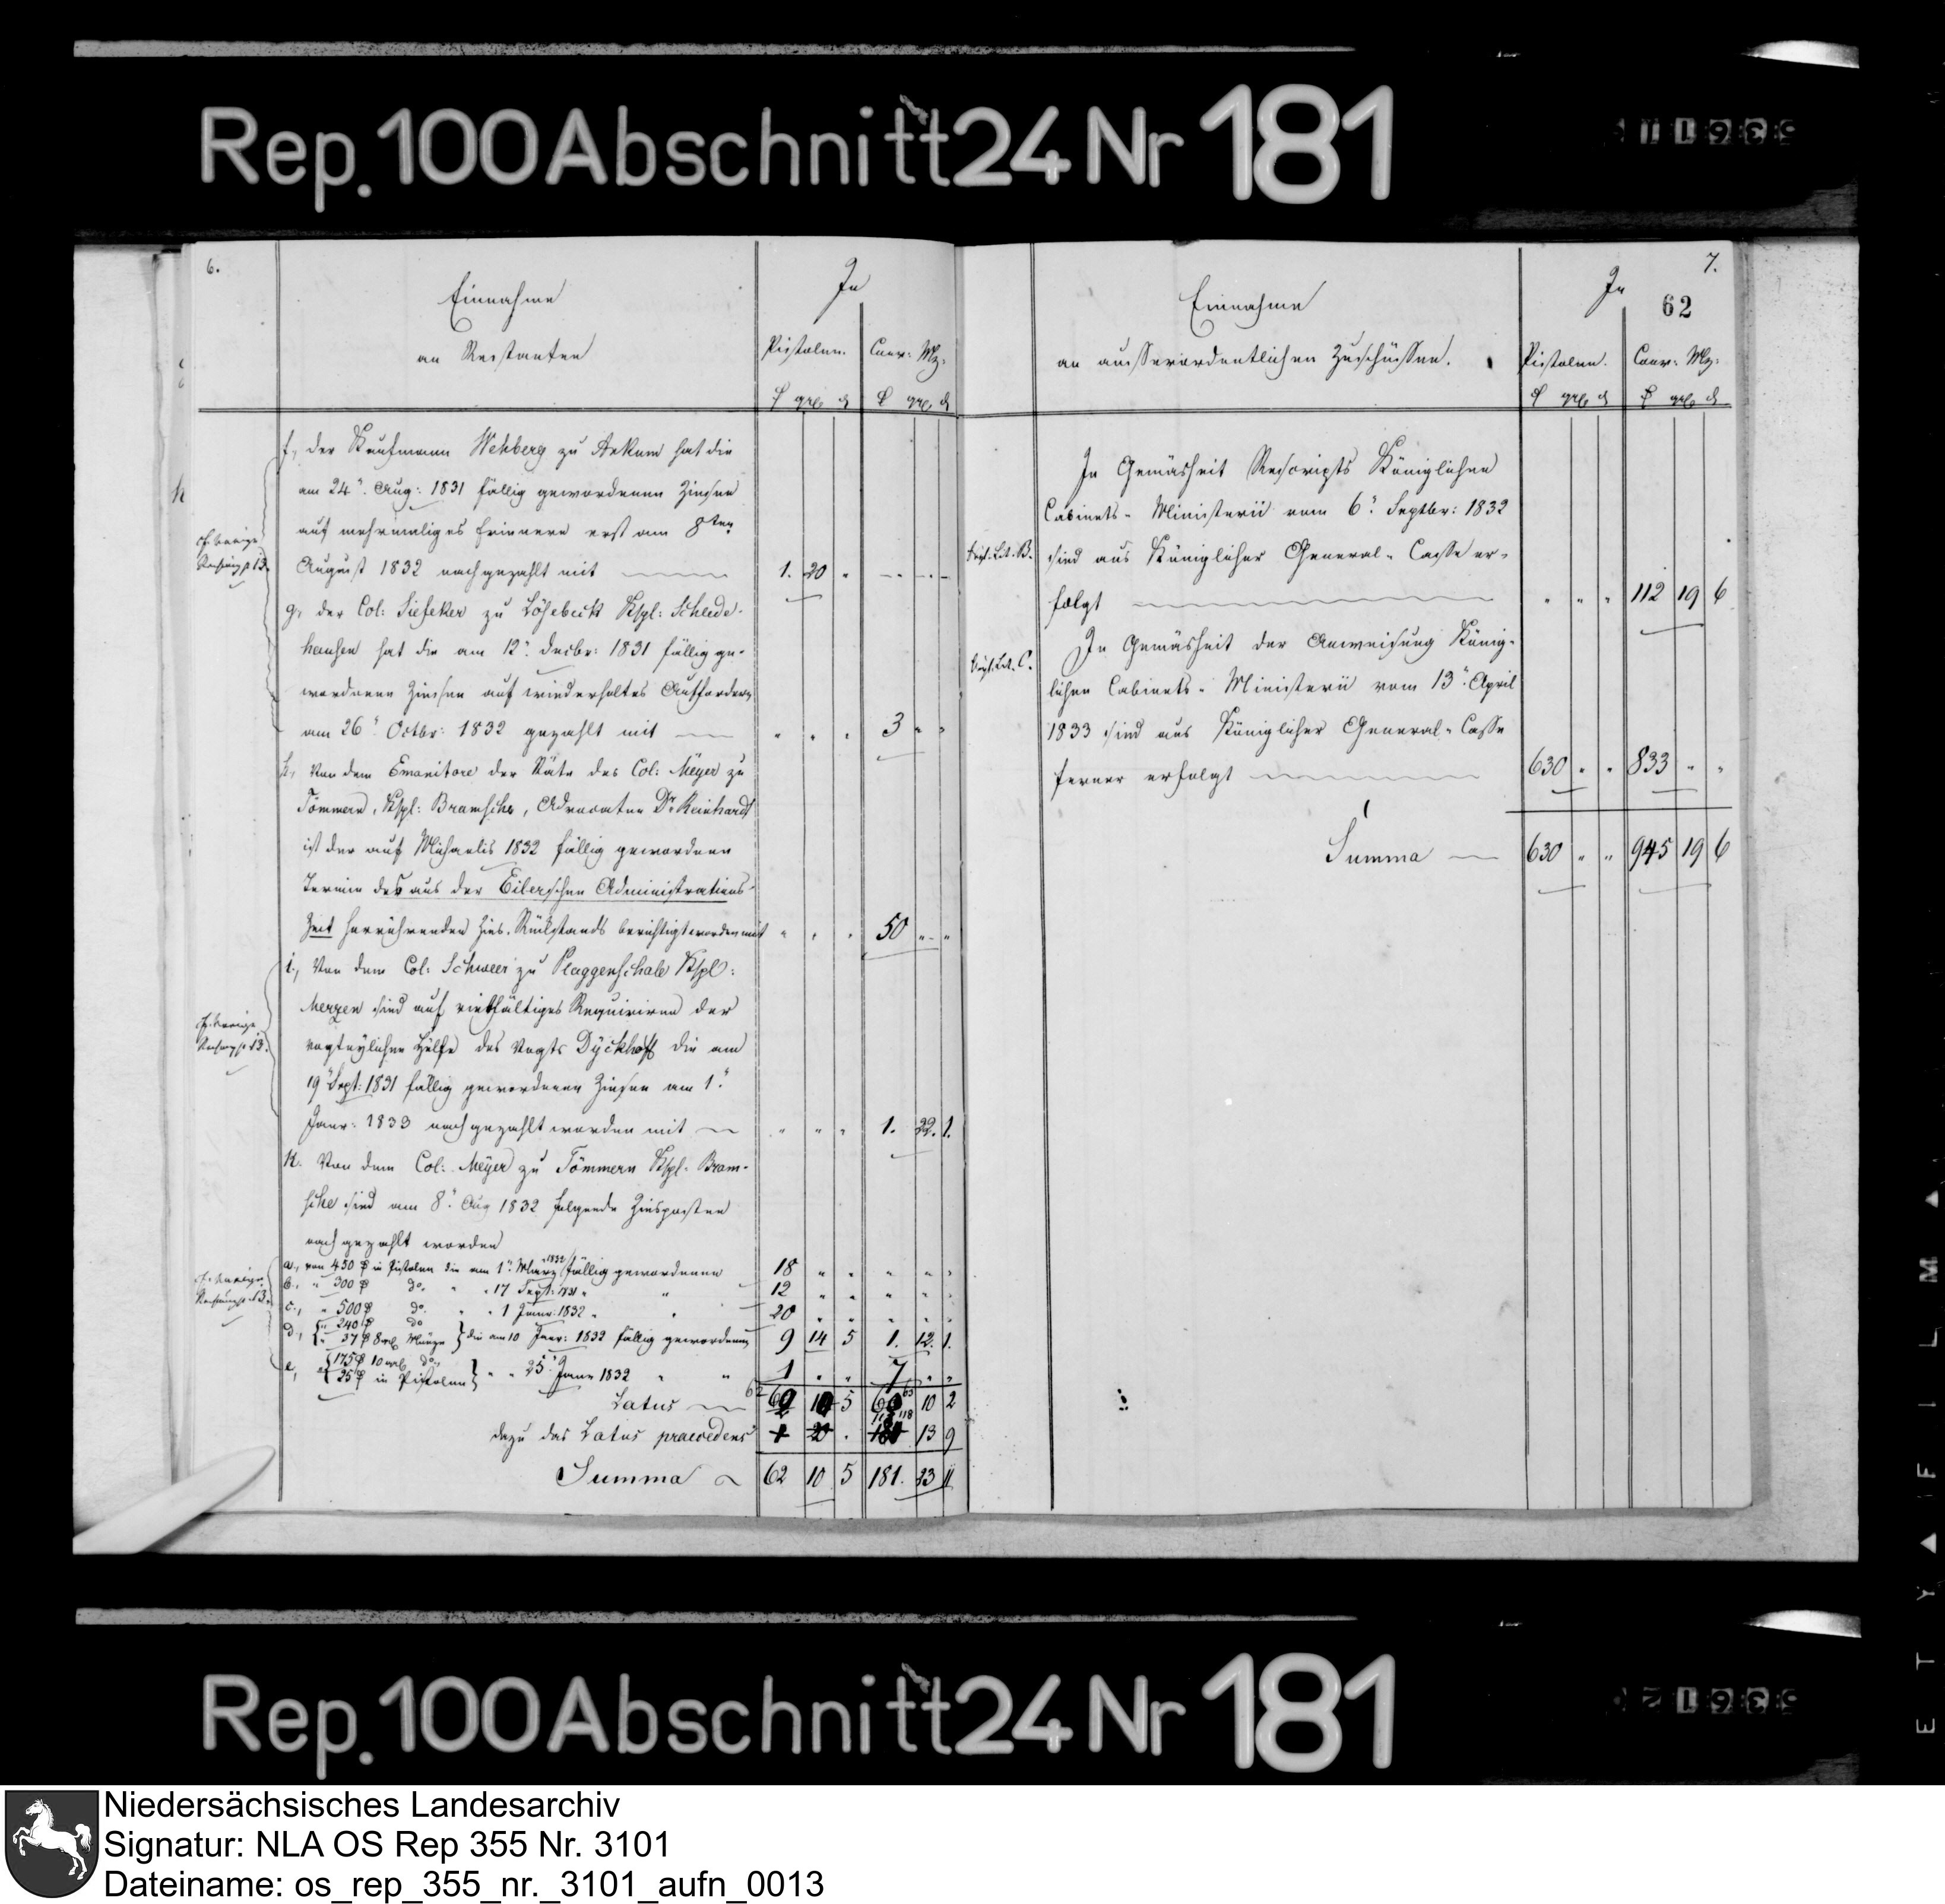 Rep. 100 Abschnitt 24 Nr 181
6.
Einnahme
an Restanten
In
Pistolen. Conv: Mz:
₰ grl d ₰ grl d
f., der Kaufmann Wehberg zu Ankum hat die
am 24t. Aug: 1831 fällig gewordenen Zinsen
auf mehrmaliges Erinnern erst am 8ten
August 1832 nachgezahlt mit 1. 20 " - - -
cf. vorige
Rechnung p. 13.
g., der Col: Siefeker zu Löhebeck Kspl: Schlede-
hausen hat die am 12t. Decbr: 1831 fällig ge-
wordenen Zinsen auf wiederholtes Auffordern
am 26t Octbr: 1832 gezahlt mit " " " 3 " "
h., Von dem Emonitore der Stäte des Col: Meyer zu
Tömmern, Kspl: Bramsche, Advocaten Dr Reinhardt
ist der auf Michaelis 1832 fällig gewordene
Termin des aus der Eilerschen Administrations-
Zeit herrührenden Zins-Rückstands berichtigt worden mit " " " 50 " "
i., Von dem Col: Schweer zu Plaggenschale Kspl:
Merzen sind auf vielfältiges Requiriren der
vogteylichen Hülfe des Vogts Dyckhoff die am
19t Sept: 1831 fällig gewordenen Zinsen am 1t.
Janr: 1833 nachgezahlt worden mit " " " 1. 22. 1.
cf. vorige
Rechnung p. 13.
k. Von dem Col: Meyer zu Tömmern Kspl. Bram-
sche sind am 8t. Aug 1832 folgende Zinsposten
nachgezahlt worden
a., von 450 ₰ in Pistolen die am 1t. März 1832 fällig gewordenen 18 " " " " "
b., " 300 ₰ do. " " 17 Sept: 1831 " " 12 " " " " "
c., " 500 ₰ do. " " 1 Janr: 1832 " " 20 " " " " "
d., { " 240 ₰ do
" 37 ₰ 8 grl Münze } die am 10 Janr: 1832 fällig gewordenen 9 14 5 1. 12. 1.
e, " { 175 ₰ 10 grl do.,
25 ₰ in Pistolen } " " 25t. Janr 1832 " " 1 " " 7 " "
cf. vorige
Rechnung p. 13.
Latus 62 10 5 63 10 2
dazu das Latus praecedens 118 13 9
Summa 62 10 5 181. 23 11
7.
62
Einnahme
an ausserordentlichen Zuschüssen.
In
Pistolen. Conv: Mz:
₰ grl d ₰ grl d
In Gemäsheit Rescripts Königlichen
Cabinets- Ministerii vom 6t. Septbr: 1832
sind aus Königlicher General- Casse er-
folgt " " " 112 19 6
Lit. B.
In Gemäsheit der Anweisung König-
lichen Cabinets- Ministerii vom 13t. April
1833 sind aus Königlicher General- Casse
ferner erfolgt 630 " " 833 " "
Lit. C.
Summa 630 " " 945 19 6
Rep. 100 Abschnitt 24 Nr 181
Niedersächsisches Landesarchiv
Signatur: NLA OS Rep 355 Nr. 3101
Dateiname: os_rep_355_nr._3101_aufn_0013